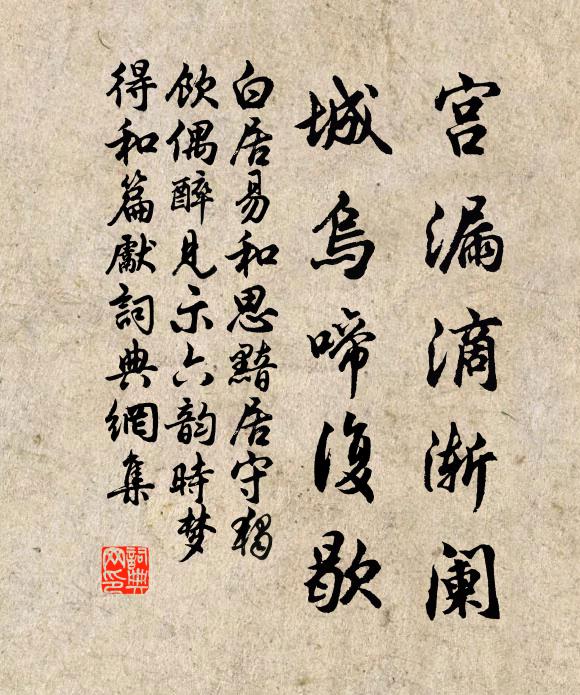 宫漏滴渐阑
城烏啼復歇
白居易和思黯居守獨
飲偶醉見示六韵時梦
得和篇獻詞典網集
詞典
网印